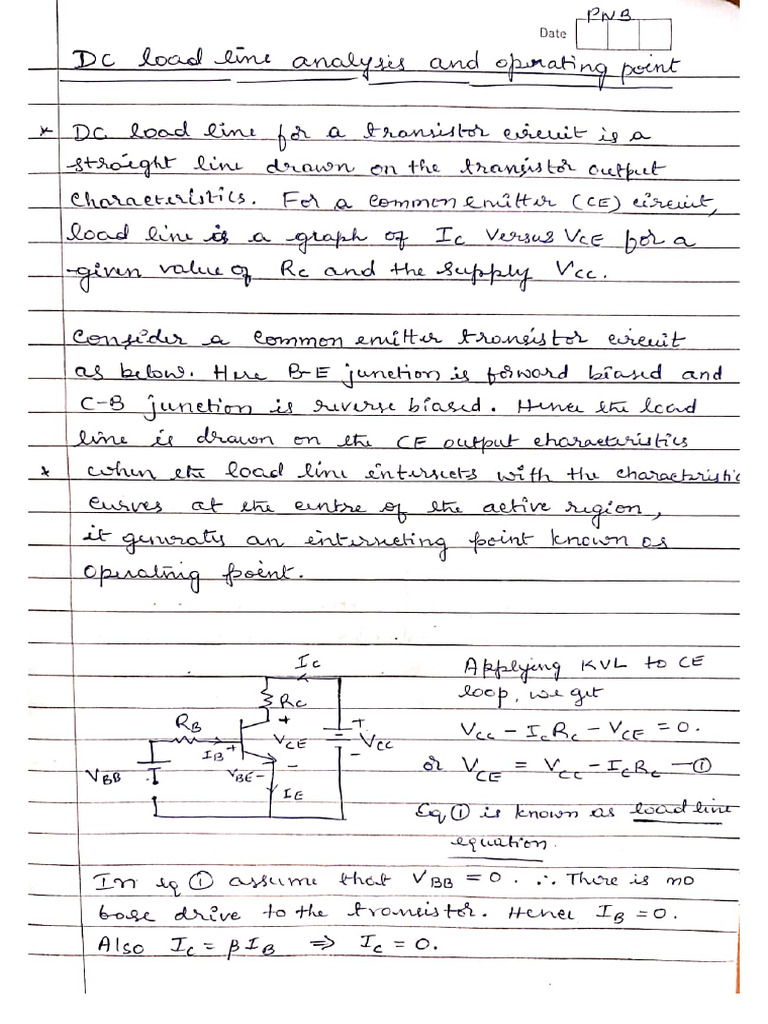 PNB
Date
DC load line analysis and operating point
* DC load line for a transistor circuit is a
straight line drawn on the transistor output
characteristics. For a common emitter (CE) circuit,
load line is a graph of IC versus VCE for a
given value of RC and the supply VCC.
Consider a common emitter transistor circuit
as below. Here B-E junction is forward biased and
C-B junction is reverse biased. Hence the load
line is drawn on the CE output characteristics
* When the load line intersects with the characteristic
curves at the centre of the active region,
it generates an intersecting point known as
operating point.
IC
RC
RB
IB
+
VBE -
+
VCE
-
+
VCC
-
VBB
IE
Applying KVL to CE
loop, we get
VCC - ICRC - VCE = 0.
or VCE = VCC - ICRC - ①
Eq ① is known as load line
equation.
In eq ① assume that VBB = 0. ∴ There is no
base drive to the transistor. Hence IB = 0.
Also IC = βIB ⇒ IC = 0.